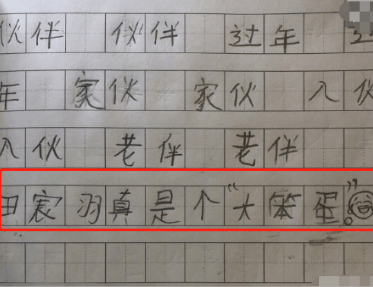 伙伴 伙伴 过年
年 家伙 家伙 入伙
入伙 老伴 老伴
田宸羽真是个“大笨蛋”。